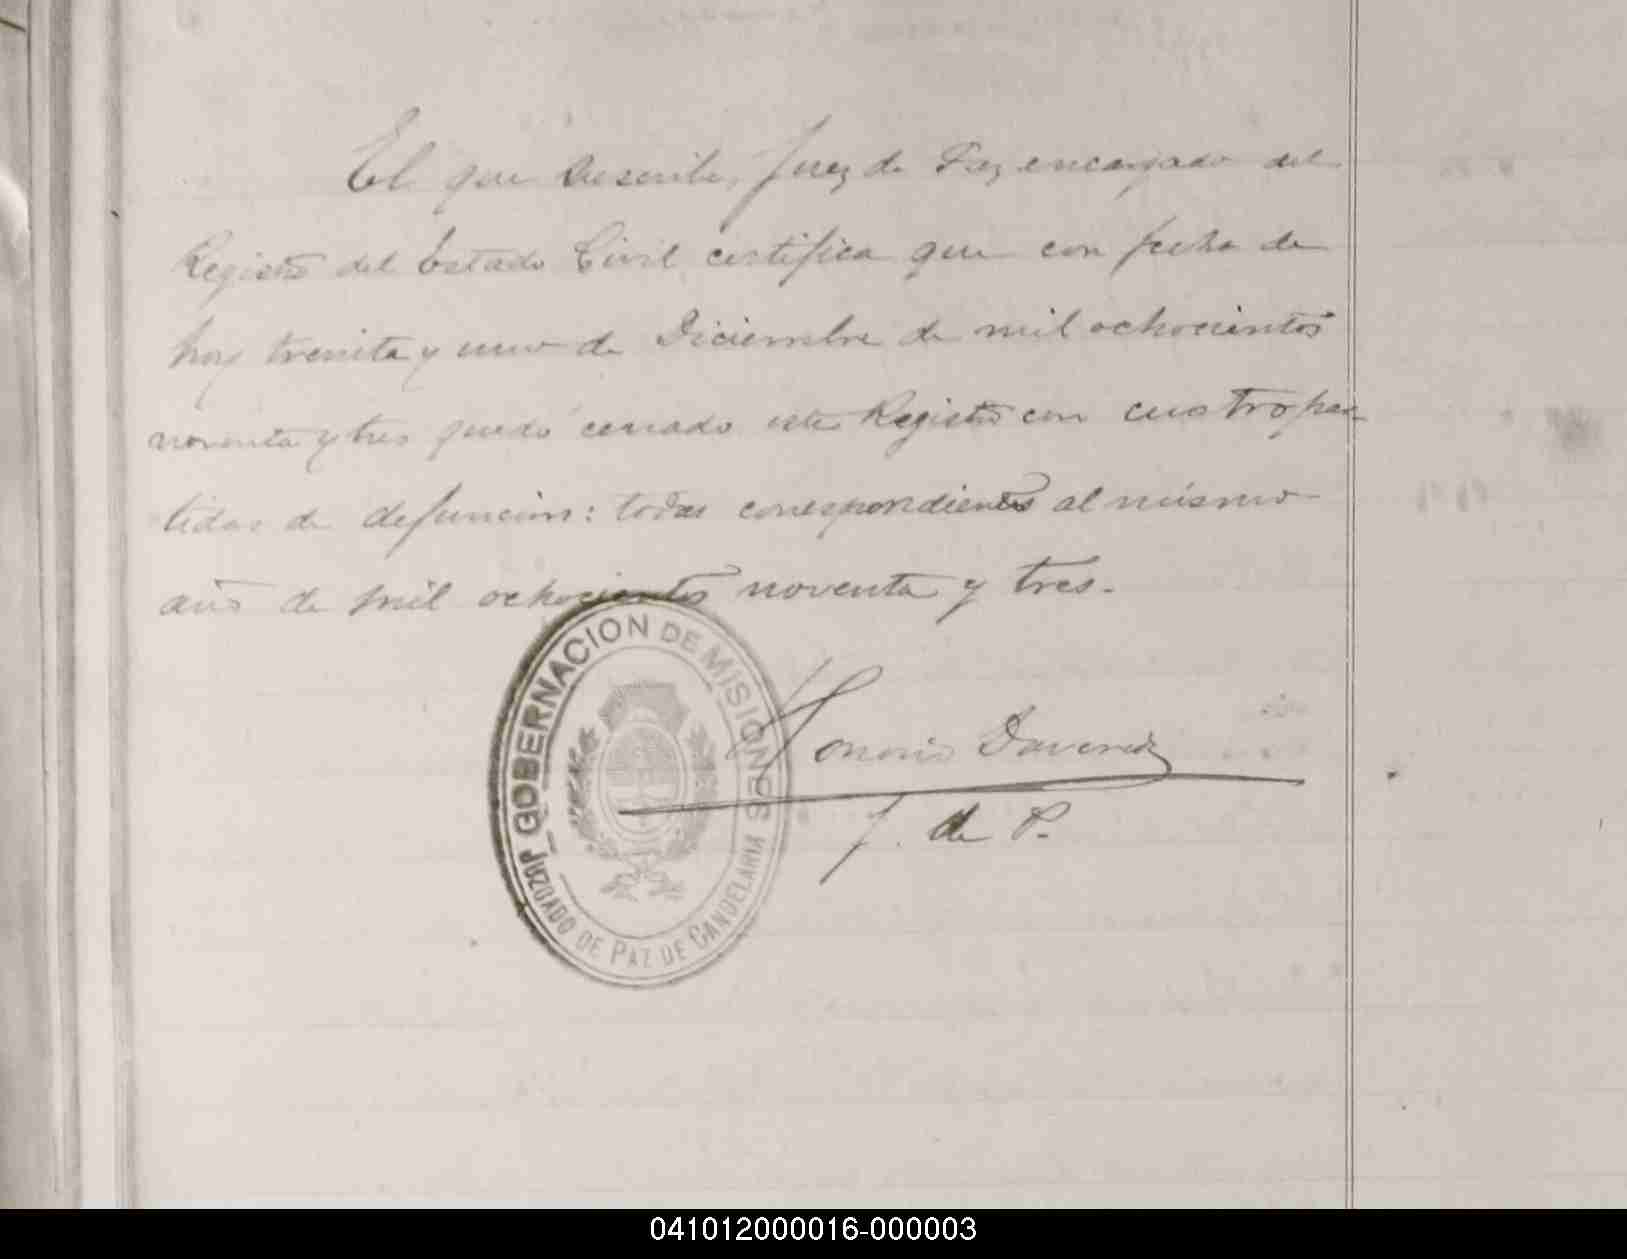 El que suscribe, Juez de Paz encargado del
Registro del Estado Civil certifica que con fecha de
hoy treinta y uno de Diciembre de mil ochocientos
noventa y tres quedó cerrado este Registro con cuatro par
tidas de defuncion: todas correspondientes al mismo
año de mil ochocientos noventa y tres.
GOBERNACION DE MISIONES
JUZGADO DE PAZ DE CANDELARIA
Honorio
J. de P.
041012000016-000003